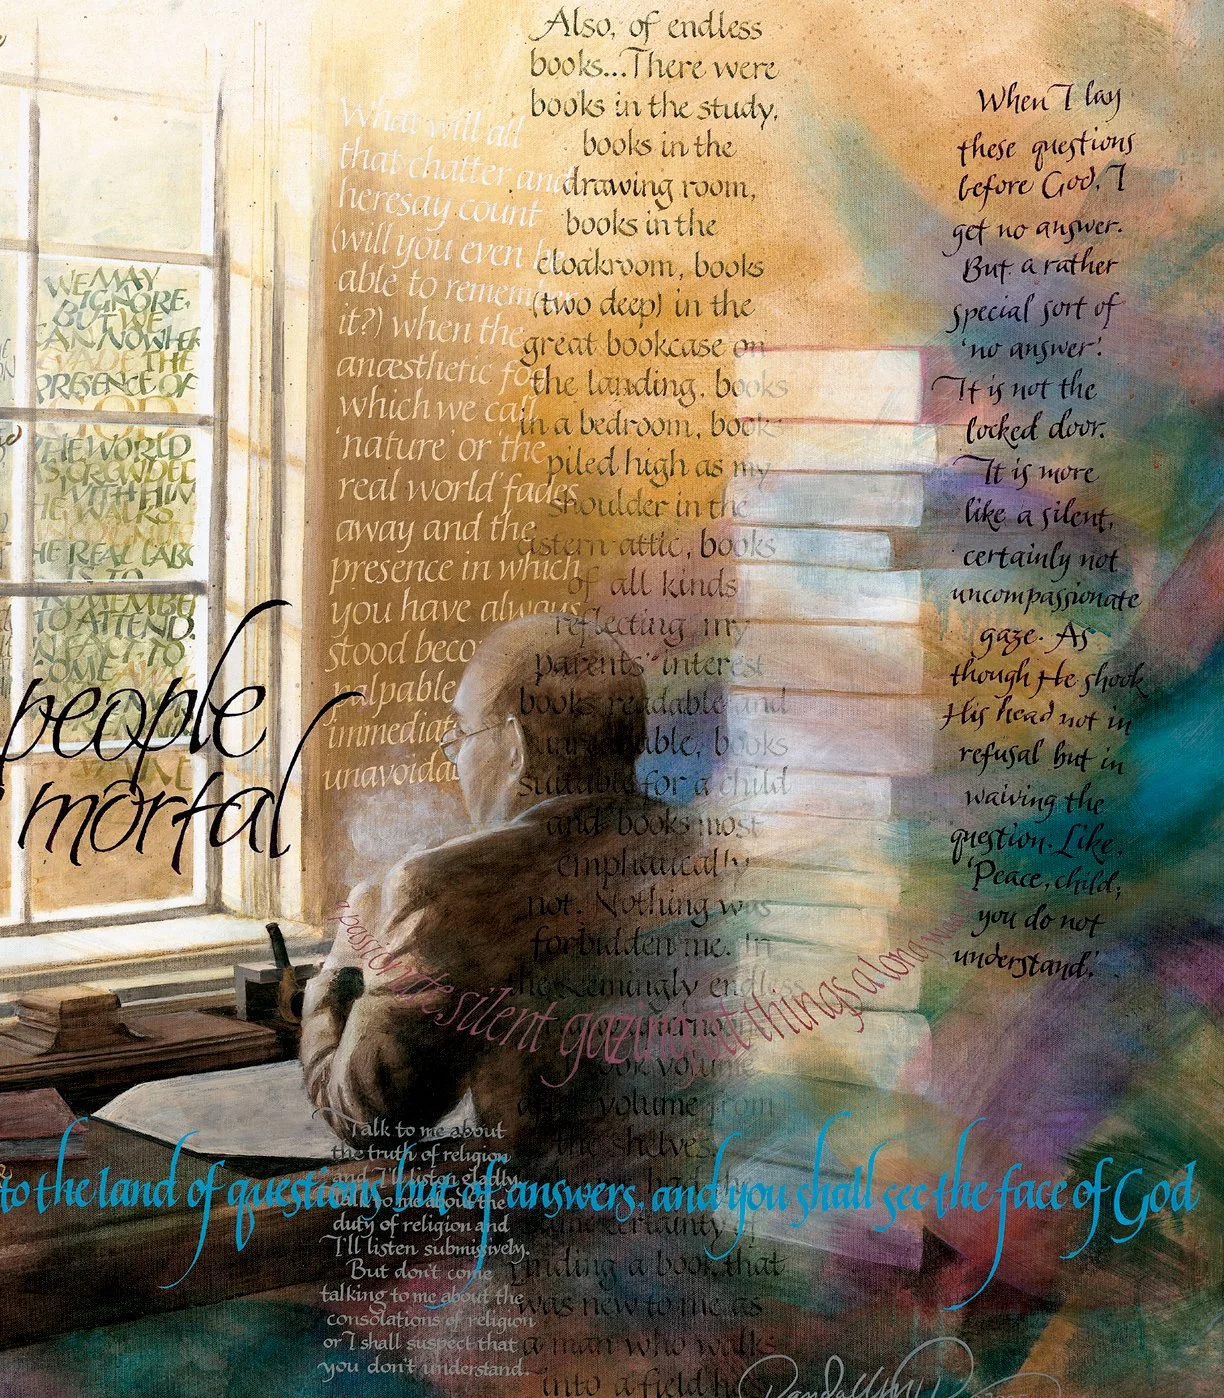 WE MAY
IGNORE,
BUT WE
CAN NOWHERE
EVADE THE
PRESENCE OF
GOD
THE WORLD
IS CROWDED
WITH HIM
HE WALKS
THE REAL LABO
IS TO
REMEMBE
TO ATTEND.
IN FACT TO
COME
people
mortal
What will all
that chatter and
heresay count
(will you even be
able to remember
it?) when the
anæsthetic fog
which we call
'nature' or 'the
real world' fades
away and the
presence in which
you have always
stood beco
palpable
immediate
unavoidab
Also, of endless
books...There were
books in the study,
books in the
drawing room,
books in the
cloakroom, books
(two deep) in the
great bookcase on
the landing, books
in a bedroom, books
piled high as my
shoulder in the
cistern attic, books
of all kinds
reflecting my
parents' interest
books readable and
unreadable, books
suitable for a child
and books most
emphatically
not. Nothing was
forbidden me. In
the seemingly endless
afternoons
took volume
after volume from
the shelves.
same certainty of
finding a book that
was new to me as
a man who walks
into a field has
When I lay
these questions
before God, I
get no answer.
But a rather
special sort of
'no answer'.
It is not the
locked door.
It is more
like a silent,
certainly not
uncompassionate
gaze. As
though He shook
His head not in
refusal but in
waiving the
question. Like,
'Peace, child;
you do not
understand.'
a passionate silent gazing at things a long way
to the land of questions but of answers, and you shall see the face of God
Talk to me about
the truth of religion
and I'll listen gladly.
Talk to me about the
duty of religion and
I'll listen submissively.
But don't come
talking to me about the
consolations of religion
or I shall suspect that
you don't understand.